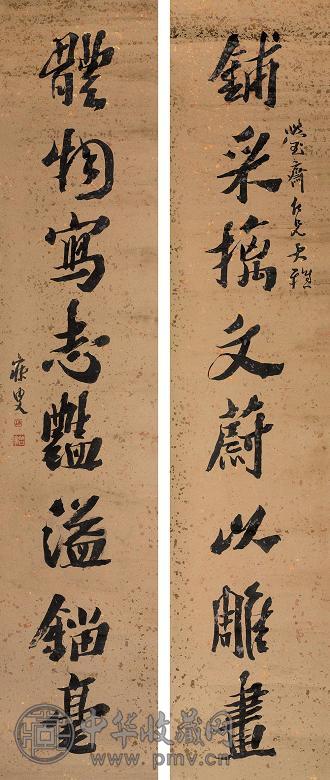 鋪采摛文蔚以雕畫
齋仁兄大雅
體物寫志豔溢錙毫
寐叟
中华收藏网
www.pmv.cn